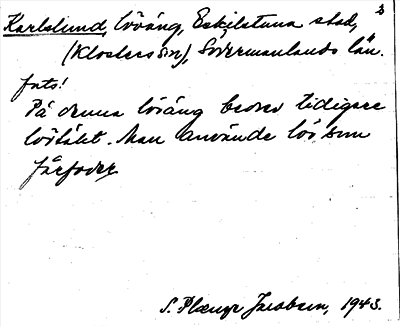 3
Karlslund, löväng, Eskilstuna stad,
(Klosters sn), Södermanlands län.
fats!
På denna löväng bedrevs tidigare
lövtäkt. Man använde löv som
fårfoder
S. Jacobsen, 1943.